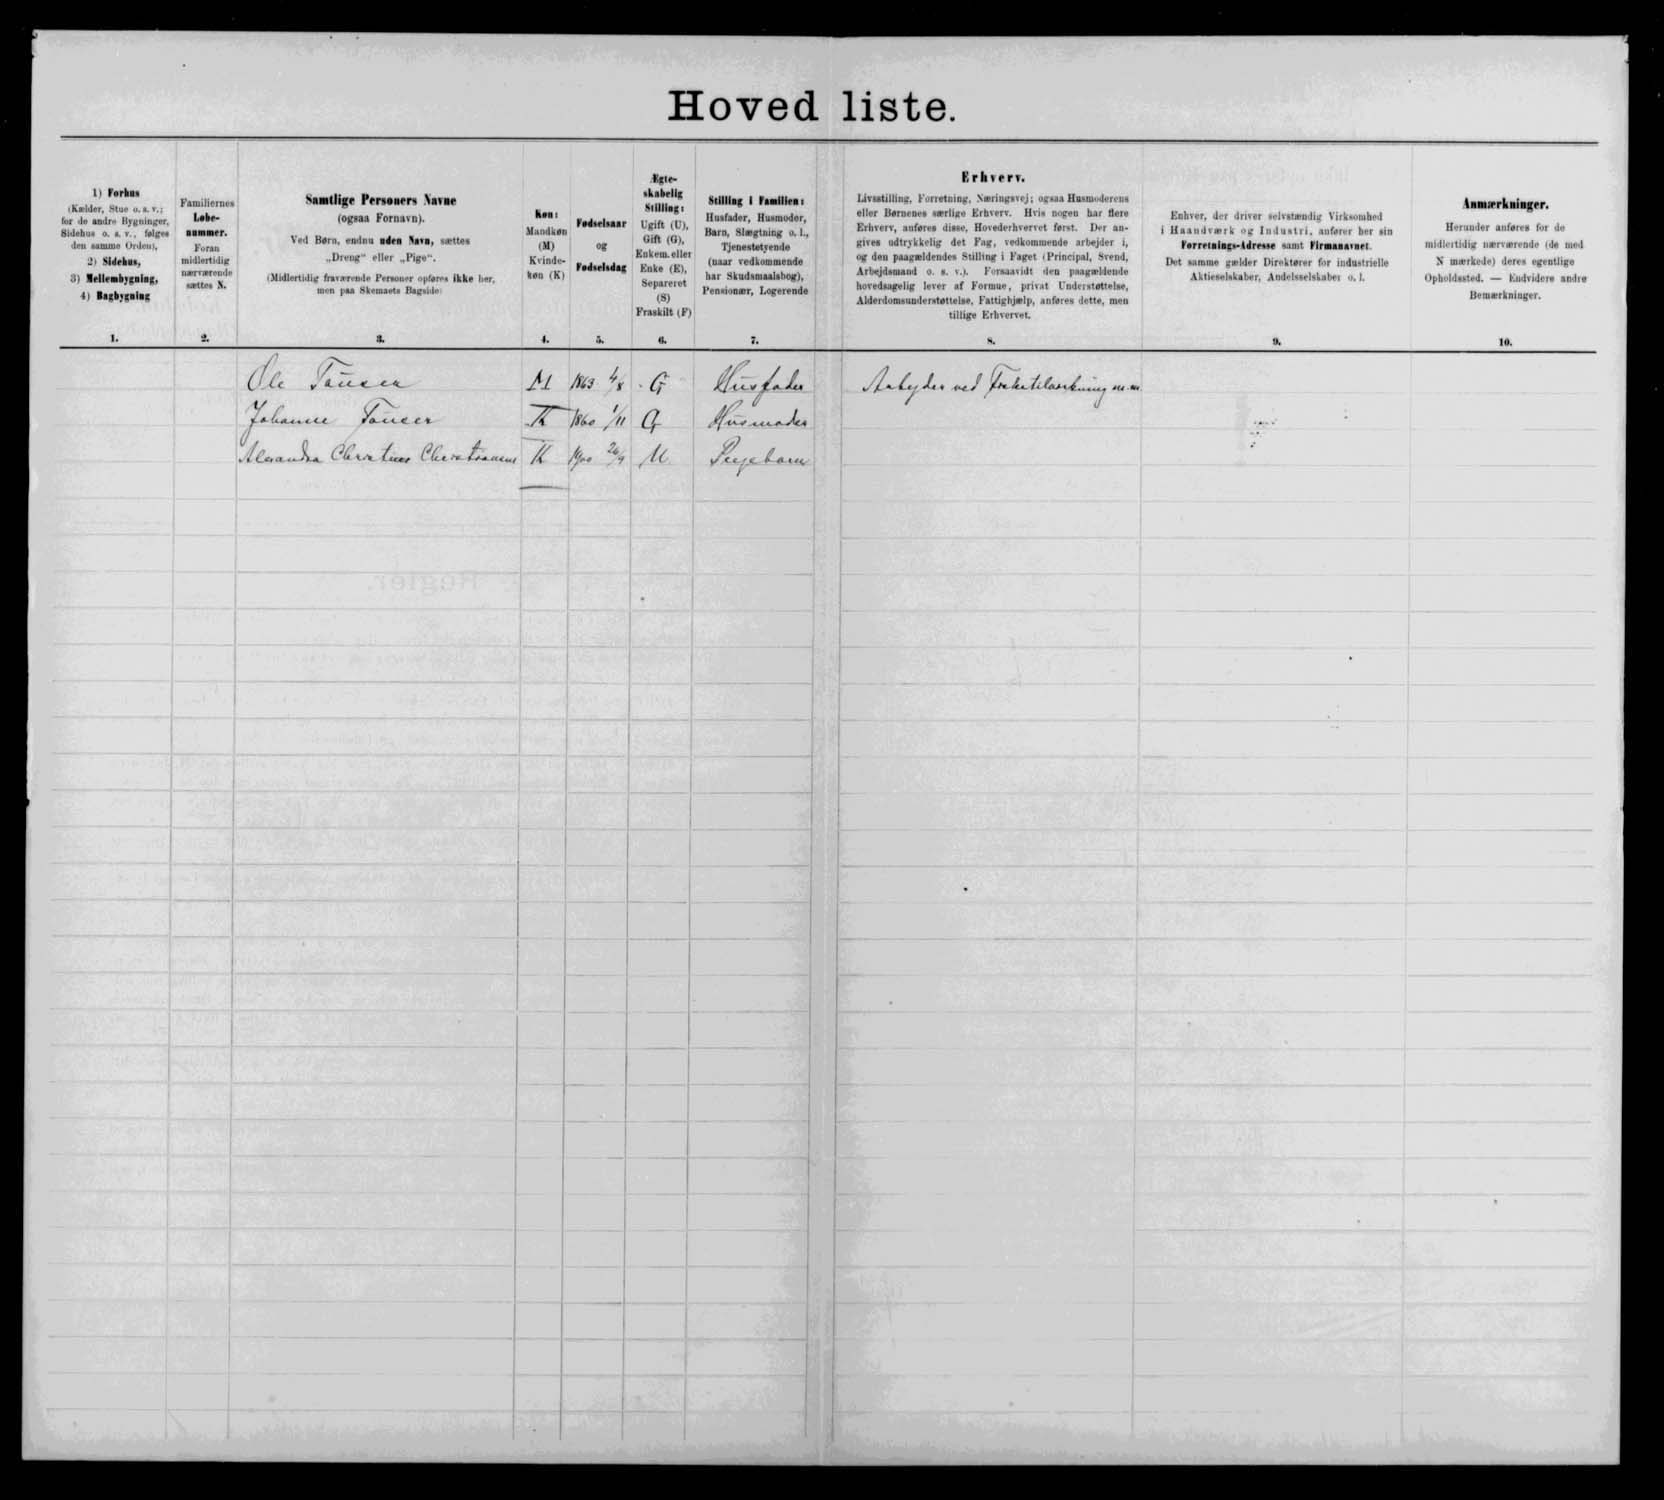 Hovedliste.
1) Forhus
(Kælder, Stue o. s. v.;
for de andre Bygninger,
Sidehus o. s. v., følges
den samme Orden),
2) Sidehus,
3) Mellembygning,
4) Bagbygning
1.
Familiernes
Løbe-
nummer.
Foran
midlertidig
nærværende
sættes N.
2.
Samtlige Personers Navne
(ogsaa Fornavn).
Ved Børn, endnu uden Navn, sættes
„Dreng“ eller „Pige“.
(Midlertidig fraværende Personer opføres ikke her,
men paa Skemaets Bagside)
3.
Køn:
Mandkøn
(M)
Kvinde-
køn (K)
4.
Fødselsaar
og
Fødselsdag
5.
Ægte-
skabelig
Stilling:
Ugift (U),
Gift (G),
Enkem. eller
Enke (E),
Separeret
(S)
Fraskilt (F)
6.
Stilling i Familien:
Husfader, Husmoder,
Barn, Slægtning o. l.,
Tjenestetyende
(naar vedkommende
har Skudsmaalsbog),
Pensionær, Logerende
7.
Erhverv.
Livsstilling, Forretning, Næringsvej; ogsaa Husmoderens
eller Børnenes særlige Erhverv. Hvis nogen har flere
Erhverv, anføres disse, Hovederhvervet først. Der an-
gives udtrykkelig det Fag, vedkommende arbejder i,
og den paagældendes Stilling i Faget (Principal, Svend,
Arbejdsmand o. s. v.). Forsaavidt den paagældende
hovedsagelig lever af Formue, privat Understøttelse,
Alderdomsunderstøttelse, Fattighjælp, anføres dette, men
tillige Erhvervet.
8.
Enhver, der driver selvstændig Virksomhed
i Haandværk og Industri, anfører her sin
Forretnings-Adresse samt Firmanavnet.
Det samme gælder Direktører for industrielle
Aktieselskaber, Andelsselskaber o. l.
9.
Anmærkninger.
Herunder anføres for de
midlertidig nærværende (de med
N mærkede) deres egentlige
Opholdssted. — Endvidere andre
Bemærkninger.
10.
Ole M 1863 4/8 G Husfader Arbejder ved m.m.
Johanne K 1860 1/11 G Husmoder
Alexandra K 1900 U Plejebarn